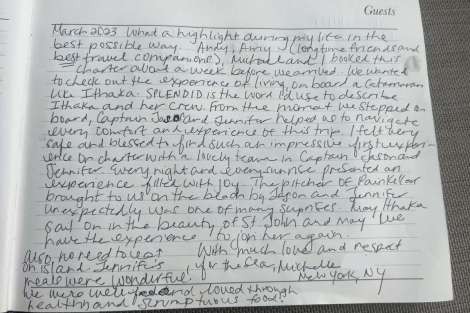 Guests
March 2023 What a highlight during my life in the
best possible way. Andy, Amy (longtime friends and
best travel companions), Michael and I booked this
charter about a week before we arrived. We wanted
to check out the experience of living on board a Catamaran
like Ithaka. SPLENDID is the word I'd use to describe
Ithaka and her crew. From the moment we stepped on
board, Captain Jason and Jennifer helped us to navigate
every comfort and experience of this trip. I felt very
safe and blessed to find such an impressive first exper-
ience on charter with a lovely team in Captain Jason and
Jennifer. Every night and every sunrise presented an
experience filled with joy. The pitcher of Painkiller
brought to us on the beach by Jason and Jennifer
unexpectedly was one of many suprises. May Ithaka
sail on in the beauty of St John and may we
have the experience to join her again.
Also, no need to eat With much love and respect
on island Jennifer's for the sea, Michelle
meals were wonderful. New York, NY
We were well fed and loved through
healthy and scrumptuous food!